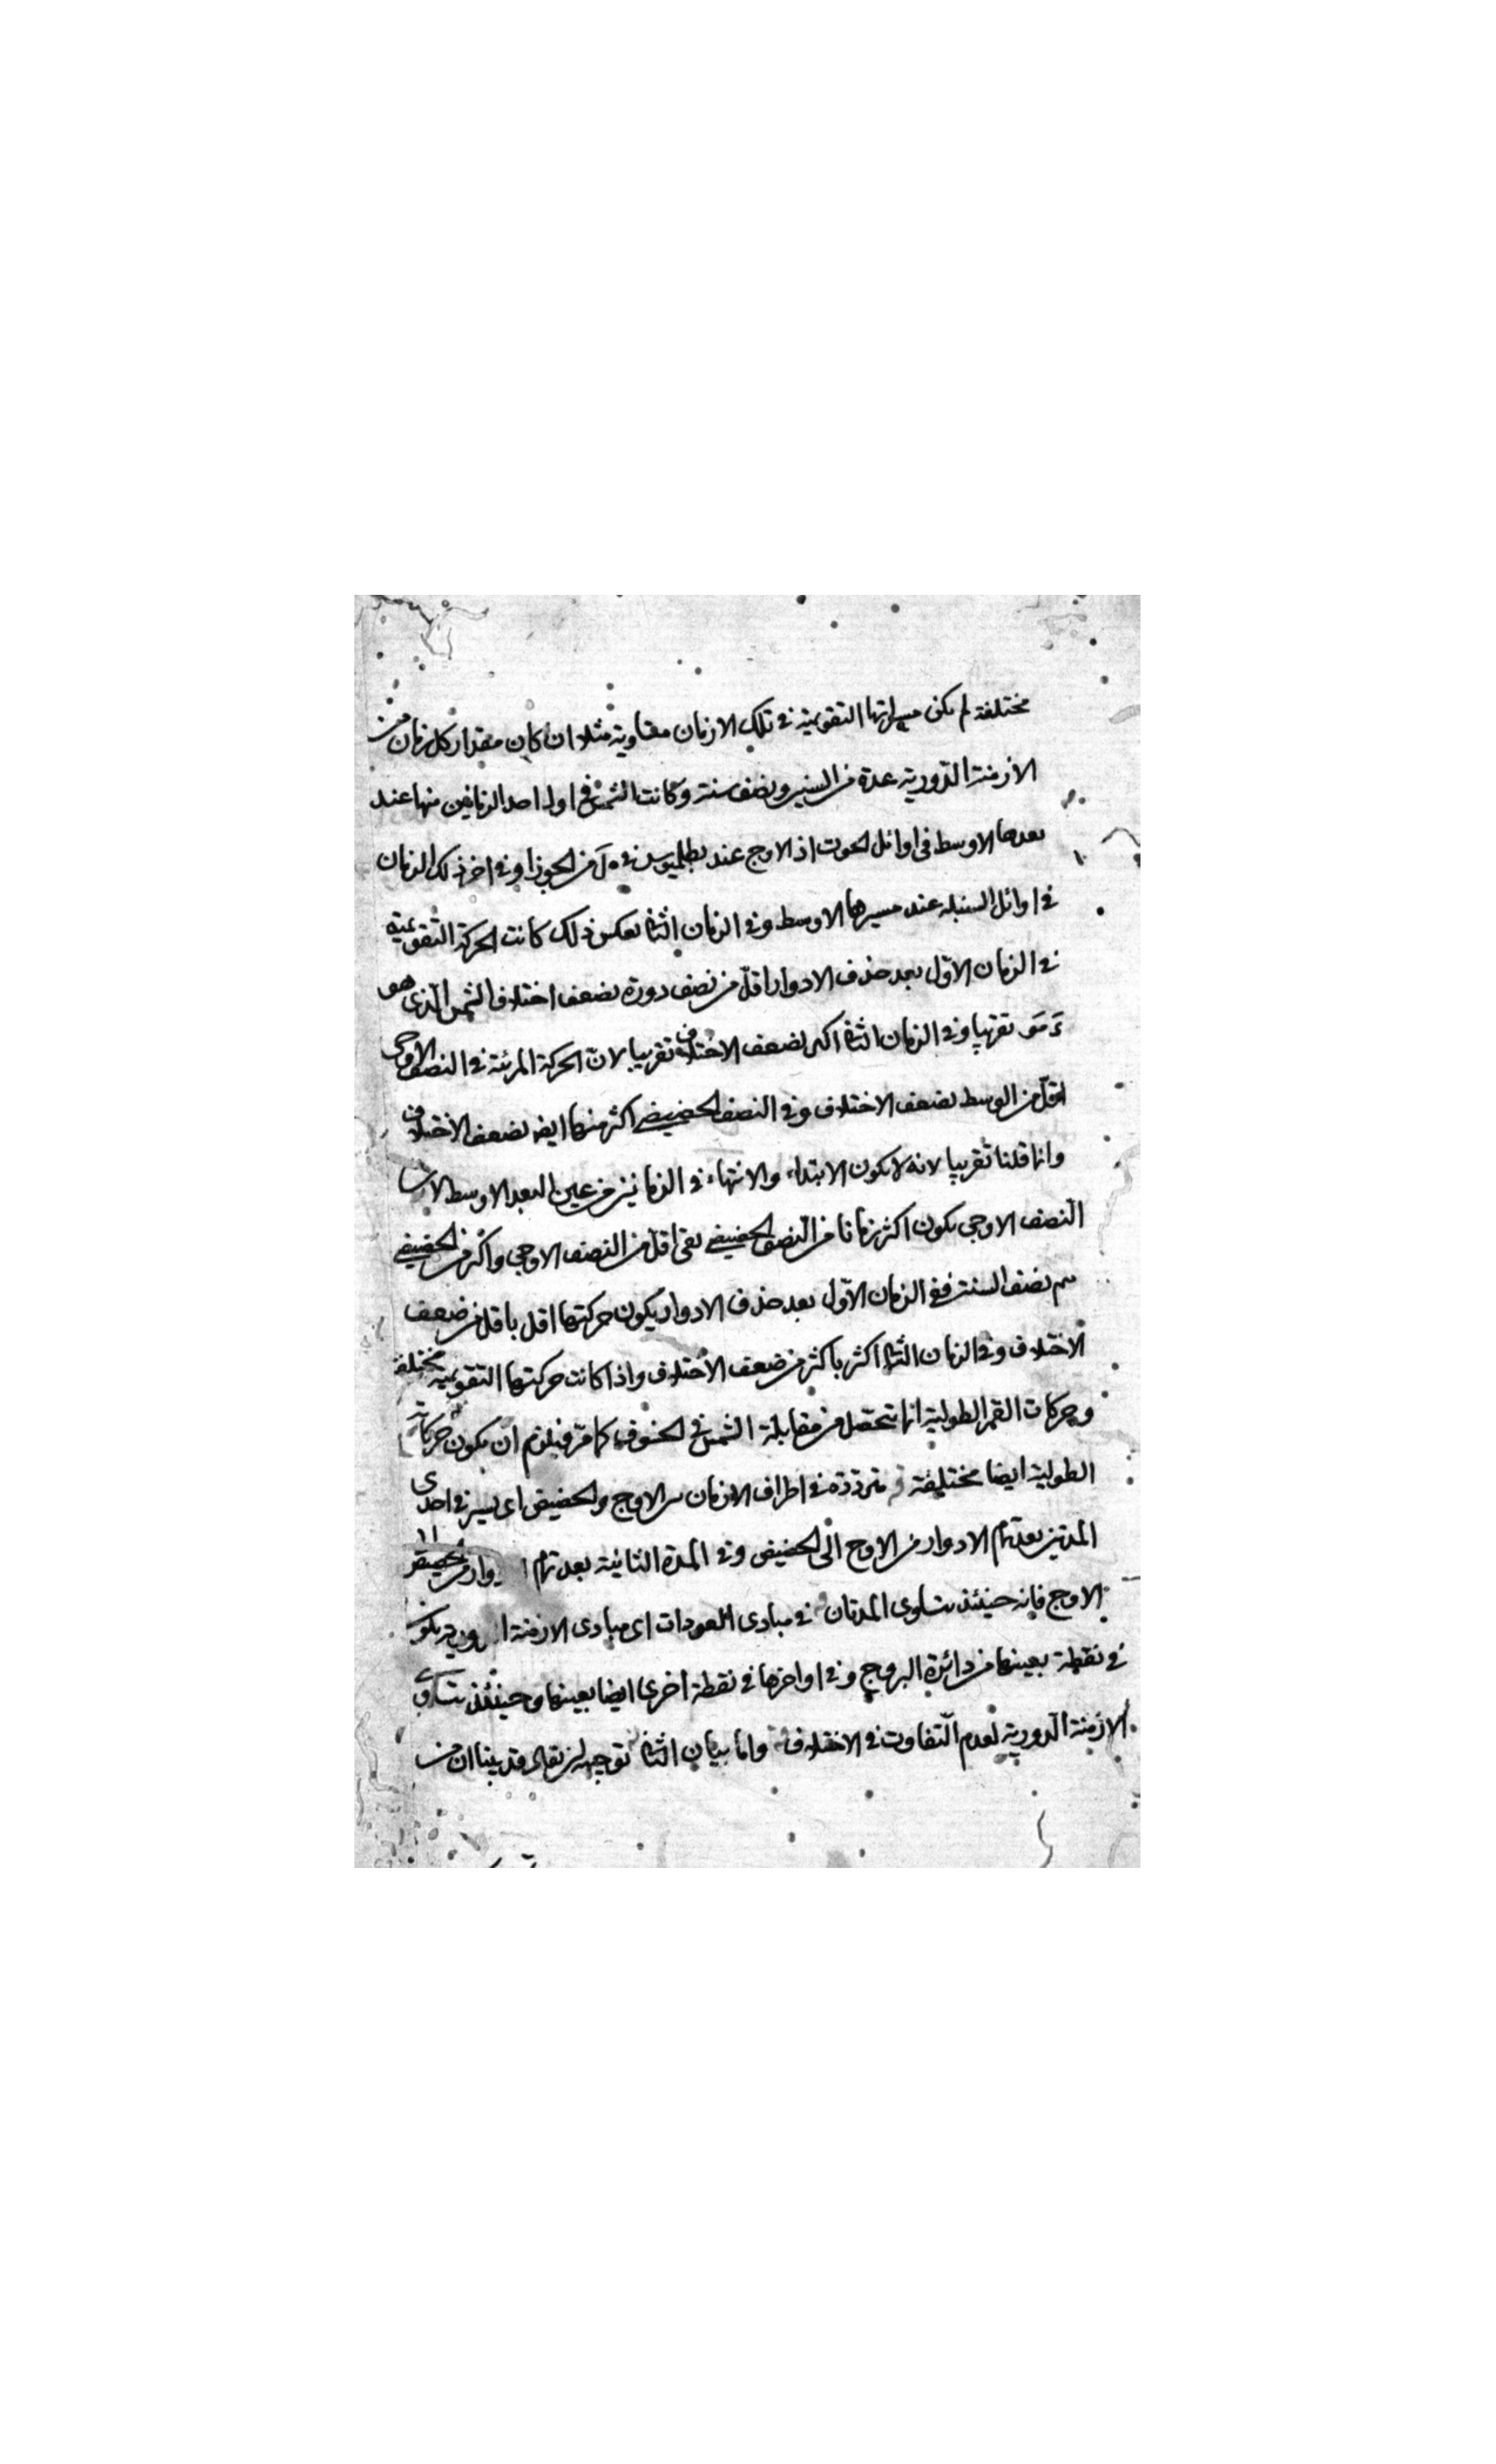 مختلفة لم يكن مسيراتها التقويمية في تلك الازمان متساوية مثلا ان كان مقدار كل زمان من
الازمنة الدورية عدة من السنين ونصف سنة وكانت الشمس في اول احد الزمانين منها عند
بعدها الاوسط في اوائل الحوت اذ الاوج عند بطلميوس في ه ل من الجوزا وفي اخر ذلك الزمان
في اوائل السنبلة عند مسيرها الاوسط وفي الزمان الثاني بعكس ذلك كانت الحركة التقويمية
في الزمان الاول بعد حذف الادوار اقل من نصف دورة بضعف اختلاف الشمس الذي هو
تقريبا وفي الزمان الثاني اكثر بضعف الاختلاف تقريبا لان الحركة المرئية في النصف الاوجي
اقل من الوسط بضعف الاختلاف وفي النصف الحضيضي اكثر منها ايضا بضعف الاختلاف
وانما قلنا تقريبا لانه لا يكون الابتداء والانتهاء في الزمانين من عين البعد الاوسط لان
النصف الاوجي يكون اكثر زمانا من النصف الحضيضي بقي اقل من النصف الاوجي واكثر من الحضيضي
نصف السنة ففي الزمان الاول بعد حذف الادوار يكون حركتها اقل باقل من ضعف
الاختلاف وفي الزمان الثاني اكثر باكثر من ضعف الاختلاف واذا كانت حركتها التقويمية مختلفة
وحركات القمر الطولية انما تتحصل من مقابلة الشمس في الخسوف كما مر فيلزم ان يكون حركاته
الطولية ايضا مختلفة مترددة في اطراف الازمان بين الاوج والحضيض اي يسير في احدى
المدتين بعد تمام الادوار من الاوج الى الحضيض وفي المدة الثانية بعد تمام من الحضيض
الاوج فانه حينئذ يتساوى المدتان في مبادى العودات اي مبادى الازمنة يكون
في نقطة بعينها من دائرة البروج وفي اواخرها في نقطة اخرى ايضا بعينها وحينئذ يتساوى
الازمنة الدورية لعدم التفاوت في الاختلاف واما بيان الثاني توجيهه ان يقال قد بينا ان من